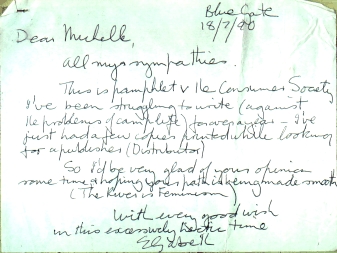 Blue Gate
18/7/90
Dear Michelle,
All my sympathies.
This is pamphlet v the Consumer Society
I've been struggling to write (against
the problems of camp life) for over a year – I've
just had a few copies printed while looking
for a publisher (Distributor)
So I'd be very glad of your opinion
some time & hoping your path is being made smooth
(The River is Feminism)
With every good wish
in this excessively hectic time
Elizabeth